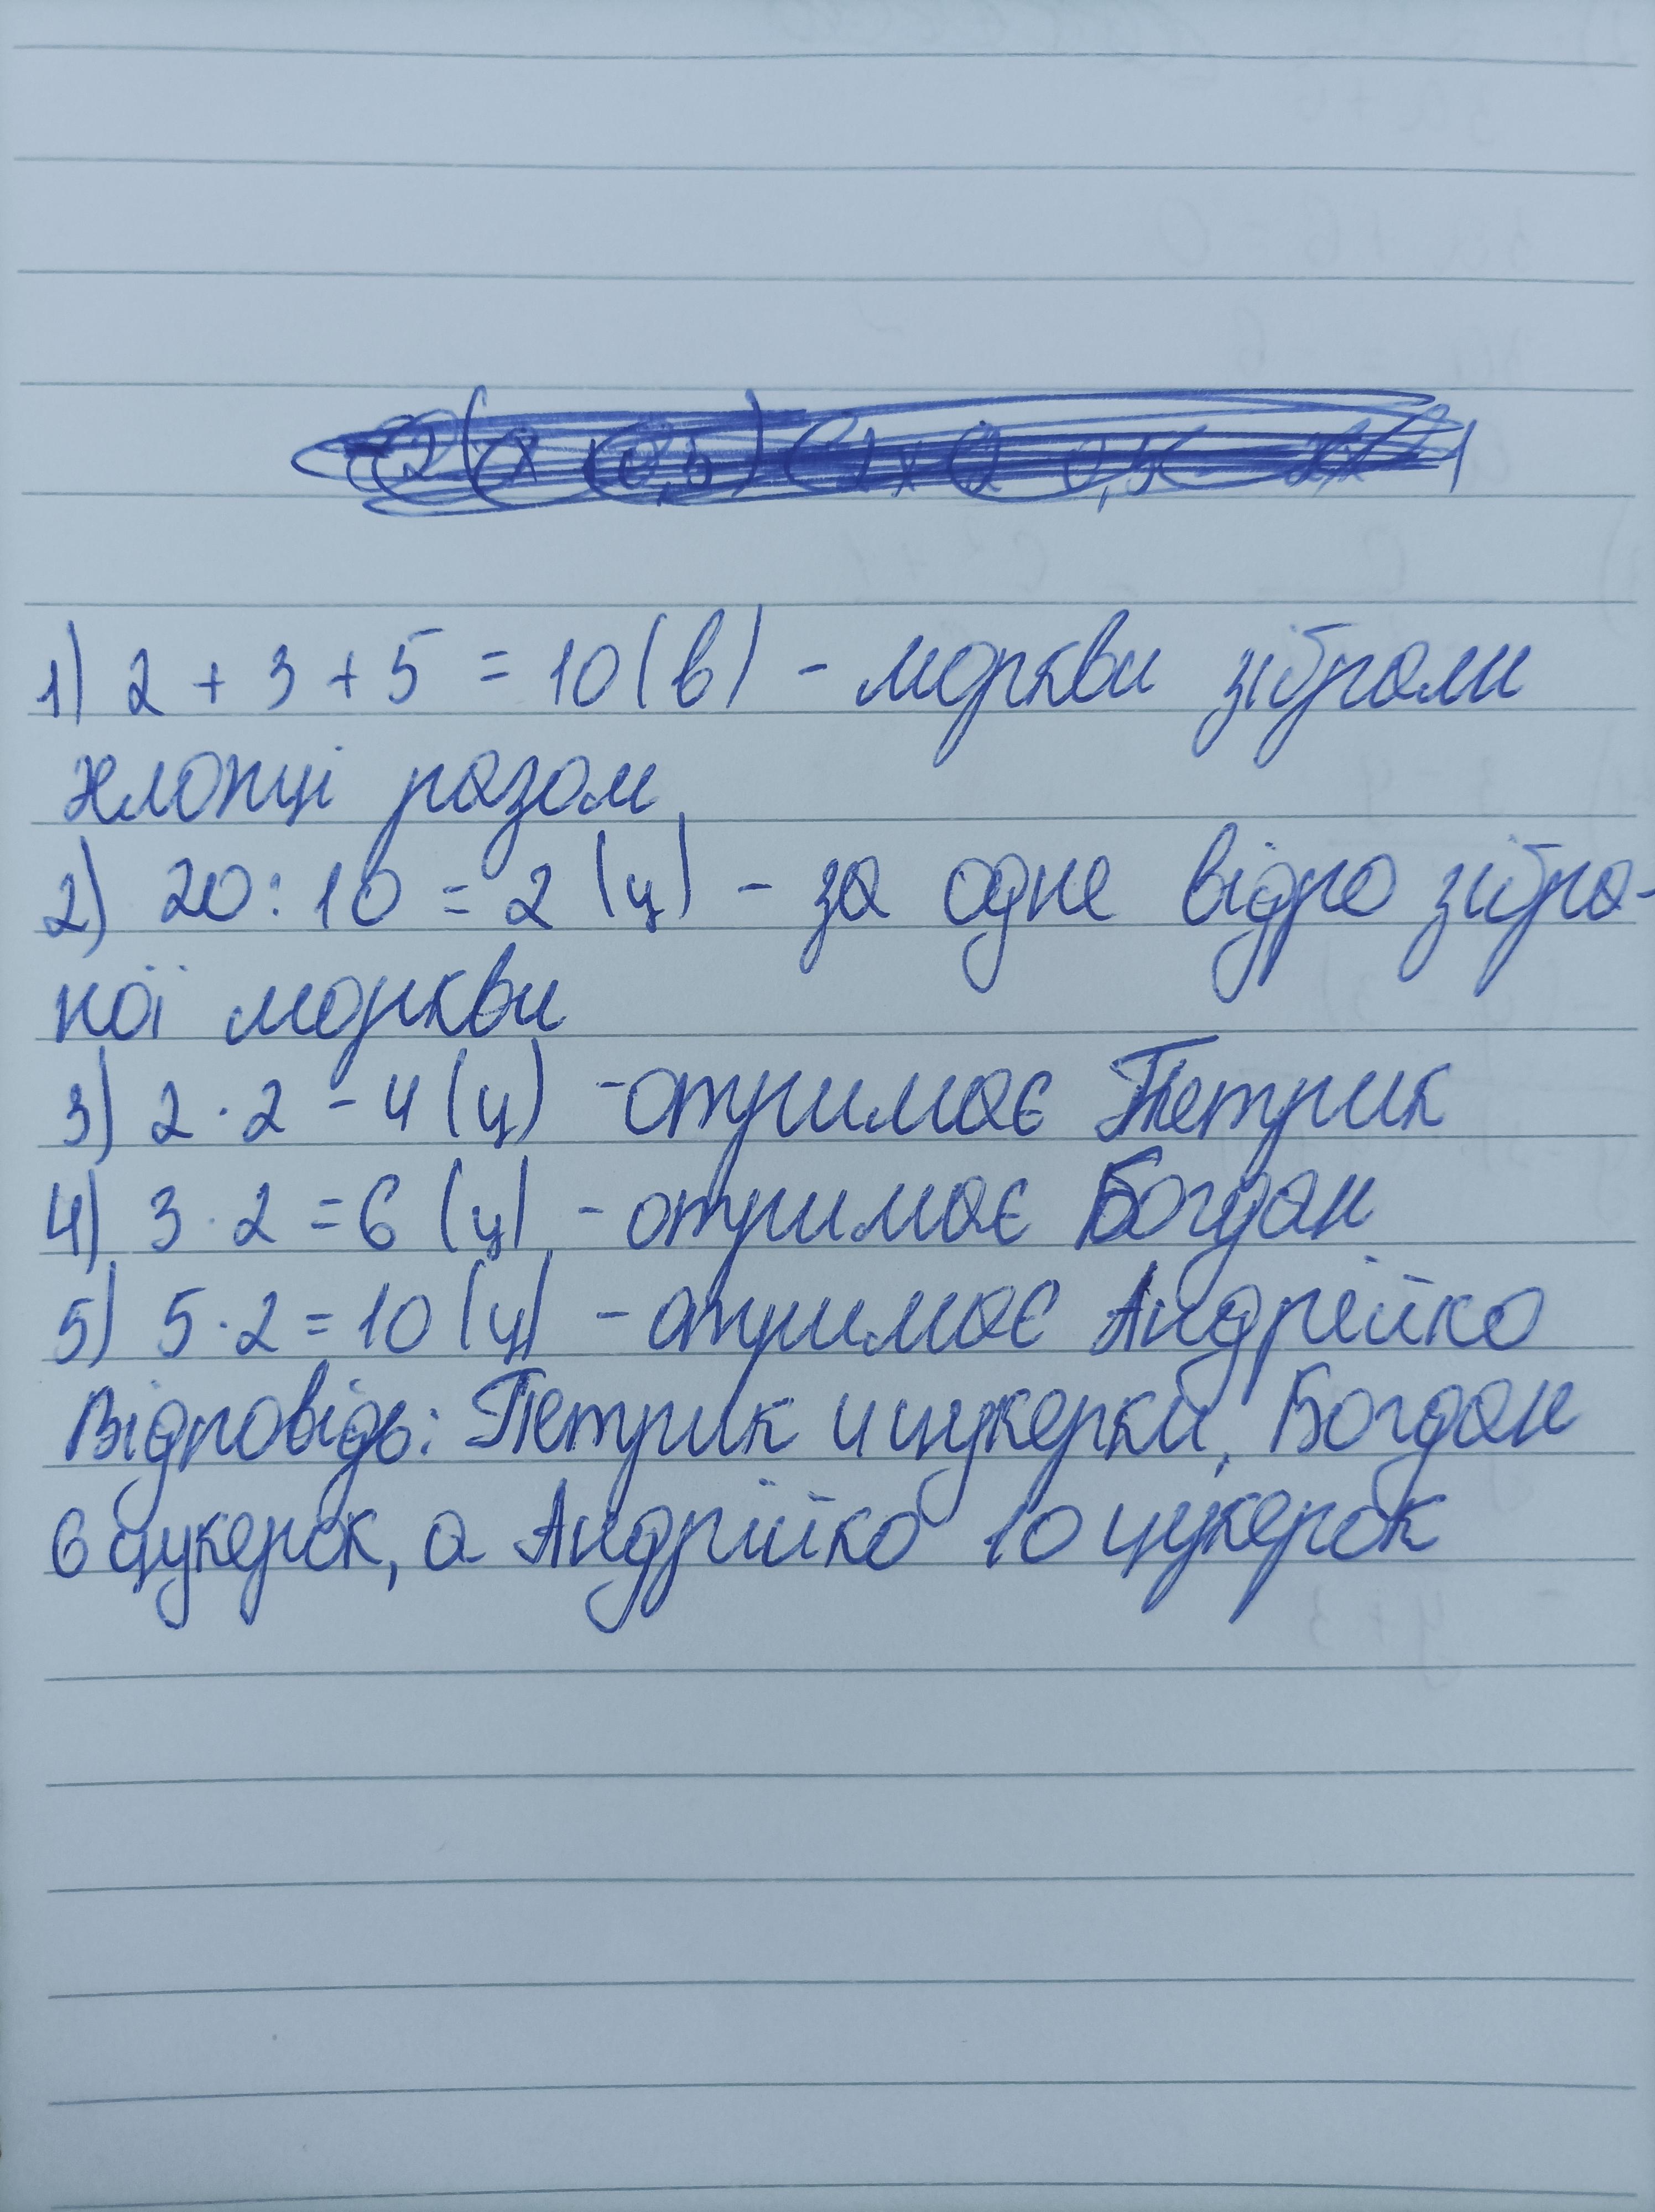 1) 2 + 3 + 5 = 10 (в) - моркви зібрали
хлопці разом
2) 20 : 10 = 2 (ц) - за одне відро зібра-
ної моркви
3) 2 · 2 - 4 (ц) - отримає Петрик
4) 3 · 2 = 6 (ц) - отримає Богдан
5) 5 · 2 = 10 (ц) - отримає Андрійко
Відповідь: Петрик 4 цукерки, Богдан
6 цукерок, а Андрійко 10 цукерок